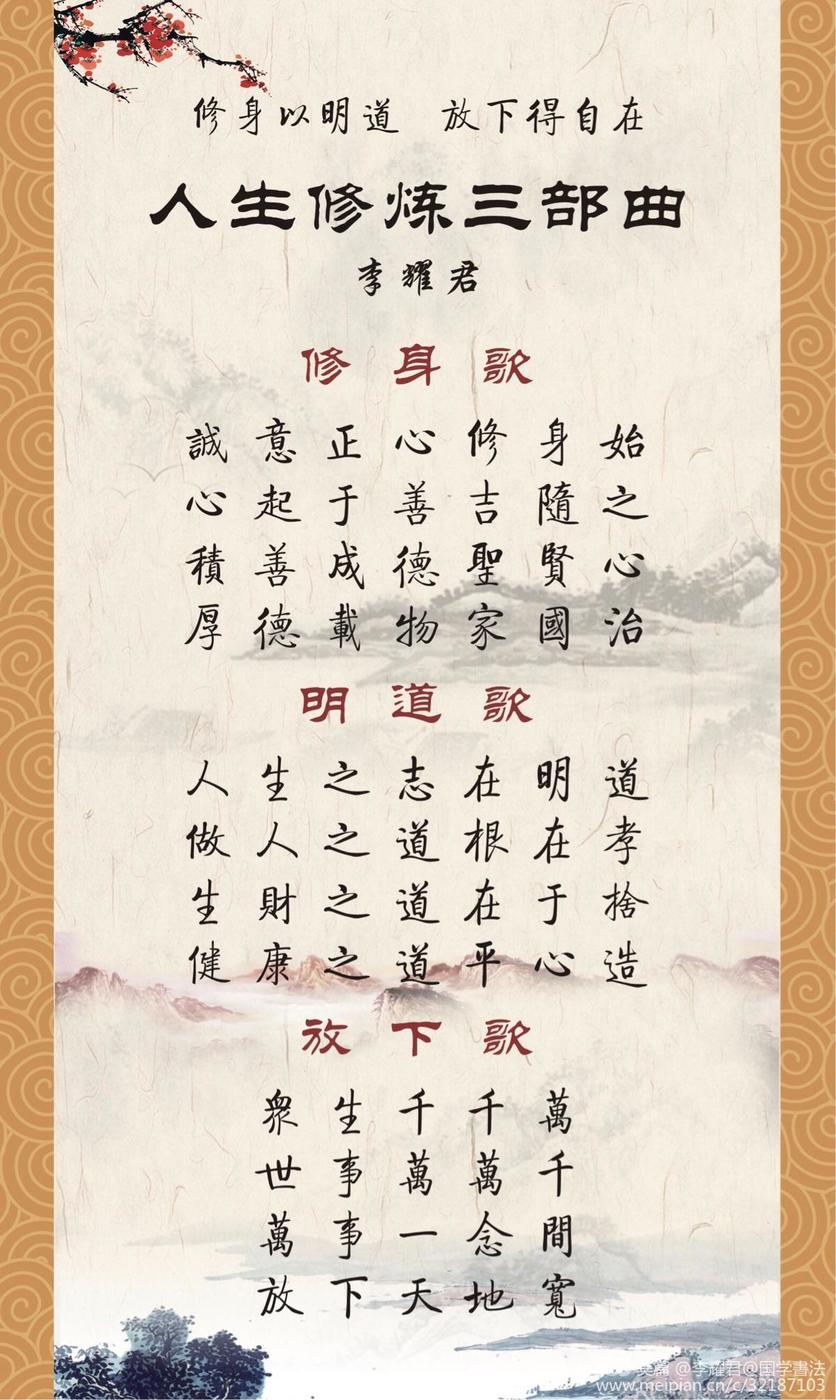 修身以明道 放下得自在
人生修炼三部曲
李耀君
修身歌
誠意正心修身始
心起于善吉隨之
積善成德聖賢心
厚德載物家國治
明道歌
人生之志在明道
做人之道根在孝
生財之道在于捨
健康之道平心造
放下歌
衆生千千萬
世事萬萬千
萬事一念間
放下天地寬
美篇 @李耀君@国学書法
www.meipian.cn/c/32187103